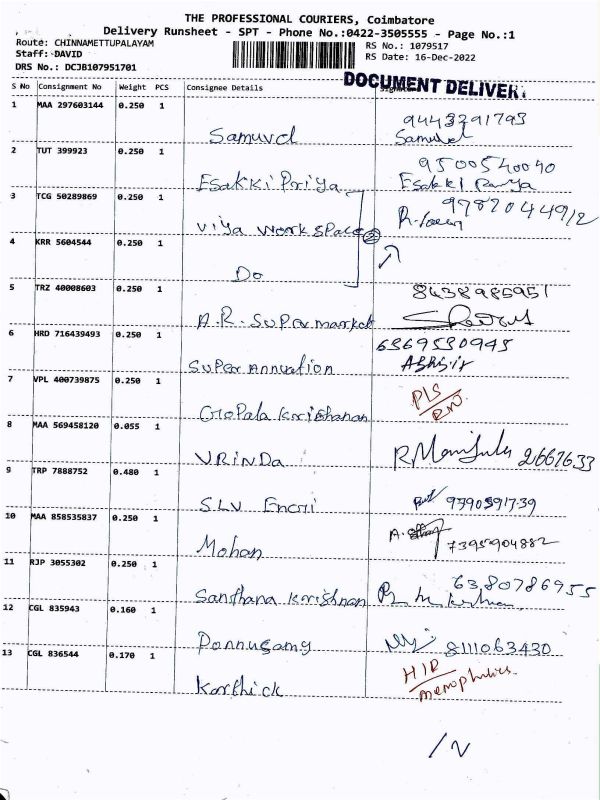 THE PROFESSIONAL COURIERS, Coimbatore
Delivery Runsheet - SPT - Phone No.:0422-3505555 - Page No.:1
Route: CHINNAMETTUPALAYAM RS No.: 1079517
Staff: DAVID RS Date: 16-Dec-2022
DRS No.: DCJB107951701
DOCUMENT DELIVERY
S No Consignment No Weight PCS Consignee Details
1 MAA 297603144 0.250 1 Samuvel 9443291793 Samuvel
2 TUT 399923 0.250 1 Esakki Priya 9500540040 Esakki Priya
3 TCG 50289869 0.250 1 Viya work space 9787044912
4 KRR 5604544 0.250 1 Do
5 TRZ 40008603 0.250 1 A.R. Supermarket 8438985951
6 HRD 716439493 0.250 1 Super Annuation 6369530945
7 VPL 400739875 0.250 1 Gopala Krishanan
8 MAA 569458120 0.055 1 VRINDA R Manjula 2661633
9 TRP 7888752 0.480 1 S.L.V 9790591739
10 MAA 858535837 0.250 1 Mohan 7395904882
11 RJP 3055302 0.250 1 Santhana Krishnan 6380786955
12 CGL 835943 0.160 1 Ponnusamy 8111063430
13 CGL 836544 0.170 1 Karthick